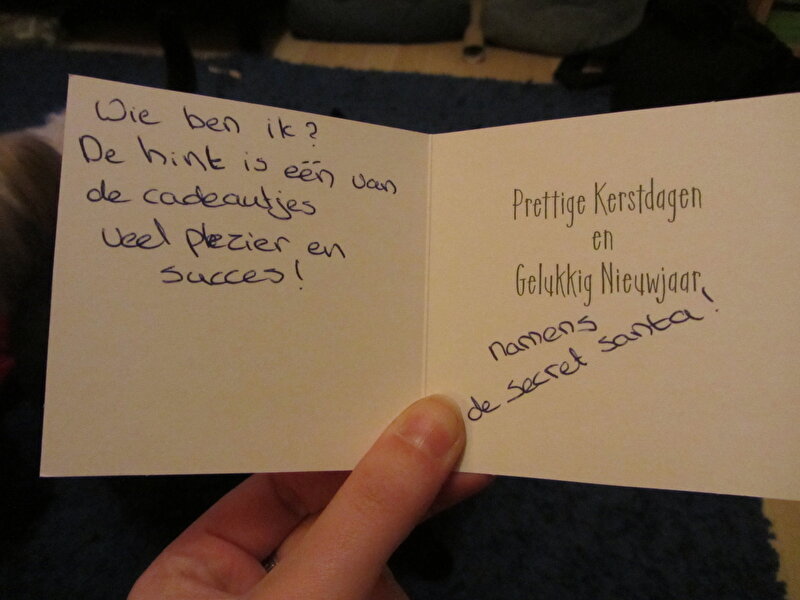 Wie ben ik?
De hint is eēn van
de cadeautjes
veel plezier en
succes!
Prettige Kerstdagen
en
Gelukkig Nieuwjaar
namens
de secret santa!